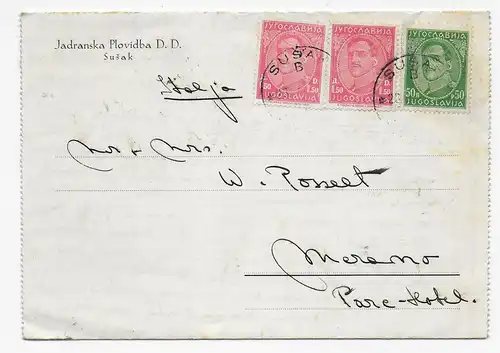 Jadranska Plovidba D. D.
Sušak
ЈУГОСЛАВИЈА ЈУГОСЛАВИЈА ЈУГОСЛАВИЈА
SUŠAK
B
SUŠAK
B
1.50 1.50 1.50 50 50
JUGOSLAVIJA JUGOSLAVIJA JUGOSLAVIJA
Italja
Mr & Mrs.
W. Rosselt
Merano
Parc-Hotel.